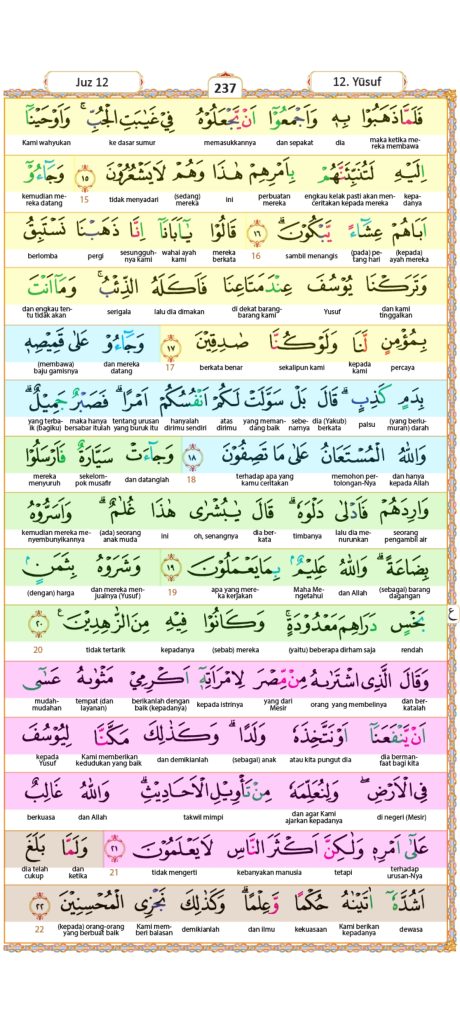 Juz 12
237
12. Yūsuf
فَلَمَّا ذَهَبُوْا بِهٖ وَاَجْمَعُوْٓا اَنْ يَّجْعَلُوْهُ فِيْ غَيٰبَتِ الْجُبِّۚ وَاَوْحَيْنَآ
maka ketika mereka membawa dia dan sepakat memasukkannya ke dasar sumur Kami wahyukan
اِلَيْهِ لَتُنَبِّئَنَّهُمْ بِاَمْرِهِمْ هٰذَا وَهُمْ لَا يَشْعُرُوْنَ ۝١٥ وَجَاۤءُوْٓ
kepadanya engkau kelak pasti akan menceritakan kepada mereka perbuatan mereka ini (sedang) mereka tidak menyadari 15 kemudian mereka datang
اَبَاهُمْ عِشَاۤءً يَّبْكُوْنَۗ ۝١٦ قَالُوْا يٰٓاَبَانَآ اِنَّا ذَهَبْنَا نَسْتَبِقُ
(kepada) ayah mereka (pada) petang hari sambil menangis 16 mereka berkata wahai ayah kami sesungguhnya kami pergi berlomba
وَتَرَكْنَا يُوْسُفَ عِنْدَ مَتَاعِنَا فَاَكَلَهُ الذِّئْبُۚ وَمَآ اَنْتَ
dan kami tinggalkan Yusuf di dekat barang-barang kami lalu dia dimakan serigala dan engkau tentu tidak akan
بِمُؤْمِنٍ لَّنَا وَلَوْ كُنَّا صٰدِقِيْنَ ۝١٧ وَجَاۤءُوْ عَلٰى قَمِيْصِهٖ
percaya kepada kami sekalipun kami berkata benar 17 dan mereka datang (membawa) baju gamisnya
بِدَمٍ كَذِبٍۗ قَالَ بَلْ سَوَّلَتْ لَكُمْ اَنْفُسُكُمْ اَمْرًاۗ فَصَبْرٌ جَمِيْلٌۗ
(yang berlumuran) darah palsu dia (Yakub) berkata sebenarnya yang memandang baik atas dirimu hanyalah dirimu sendiri tentang urusan yang buruk itu maka hanya bersabar itulah yang terbaik (bagiku)
وَاللّٰهُ الْمُسْتَعَانُ عَلٰى مَا تَصِفُوْنَ ۝١٨ وَجَاۤءَتْ سَيَّارَةٌ فَاَرْسَلُوْا
dan hanya kepada Allah memohon pertolongan-Nya terhadap apa yang kamu ceritakan 18 dan datanglah sekelompok musafir mereka menyuruh
وَارِدَهُمْ فَاَدْلٰى دَلْوَهٗۗ قَالَ يٰبُشْرٰى هٰذَا غُلٰمٌۗ وَاَسَرُّوْهُ
seorang pengambil air lalu dia menurunkan timbanya dia berkata oh, senangnya ini (ada) seorang anak muda kemudian mereka menyembunyikannya
بِضَاعَةًۗ وَاللّٰهُ عَلِيْمٌۢ بِمَا يَعْمَلُوْنَ ۝١٩ وَشَرَوْهُ بِثَمَنٍۢ
(sebagai) barang dagangan dan Allah Maha Mengetahui apa yang mereka kerjakan 19 dan mereka menjualnya (Yusuf) (dengan) harga
بَخْسٍ دَرَاهِمَ مَعْدُوْدَةٍۚ وَكَانُوْا فِيْهِ مِنَ الزّٰهِدِيْنَ ۝٢٠
rendah (yaitu) beberapa dirham saja (sebab) mereka kepadanya tidak tertarik 20
ع
وَقَالَ الَّذِى اشْتَرٰىهُ مِنْ مِّصْرَ لِامْرَاَتِهٖٓ اَكْرِمِيْ مَثْوٰىهُ عَسٰٓى
dan berkatalah orang yang membelinya yang dari Mesir kepada istrinya berikanlah dengan baik (kepadanya) tempat (dan layanan) mudah-mudahan
اَنْ يَّنْفَعَنَآ اَوْ نَتَّخِذَهٗ وَلَدًاۗ وَكَذٰلِكَ مَكَّنَّا لِيُوْسُفَ
dia bermanfaat bagi kita atau kita pungut dia (sebagai) anak dan demikianlah Kami memberikan kedudukan yang baik kepada Yusuf
فِى الْاَرْضِۖ وَلِنُعَلِّمَهٗ مِنْ تَأْوِيْلِ الْاَحَادِيْثِۗ وَاللّٰهُ غَالِبٌ
di negeri (Mesir) dan agar Kami ajarkan kepadanya takwil mimpi dan Allah berkuasa
عَلٰٓى اَمْرِهٖ وَلٰكِنَّ اَكْثَرَ النَّاسِ لَا يَعْلَمُوْنَ ۝٢١ وَلَمَّا بَلَغَ
terhadap urusan-Nya tetapi kebanyakan manusia tidak mengerti 21 dan ketika dia telah cukup
اَشُدَّهٗٓ اٰتَيْنٰهُ حُكْمًا وَّعِلْمًاۗ وَكَذٰلِكَ نَجْزِى الْمُحْسِنِيْنَ ۝٢٢
dewasa Kami berikan kepadanya kekuasaan dan ilmu demikianlah Kami memberi balasan (kepada) orang-orang yang berbuat baik 22